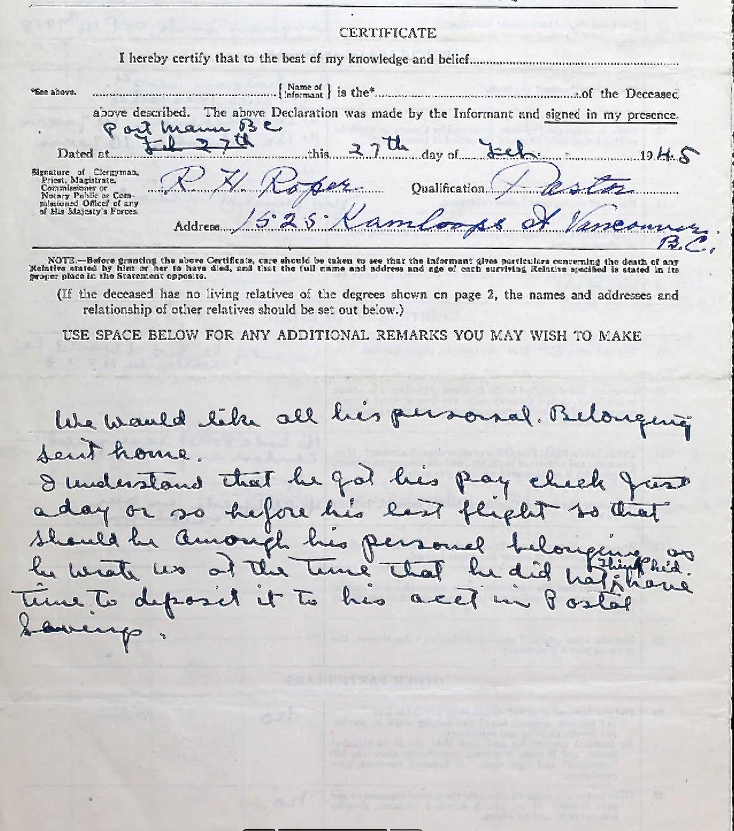 CERTIFICATE
I hereby certify that to the best of my knowledge and belief
*See above. { Name of Informant } is the* of the Deceased
above described. The above Declaration was made by the Informant and signed in my presence.
Port Mann BC
Dated at Feb 27th this 27th day of Feb. 1945
Signature of Clergyman,
Priest, Magistrate,
Commissioner or
Notary Public or Com-
missioned Officer of any
of His Majesty's Forces.
R H Roper Qualification Pastor
Address 1525 Kamloops St Vancouver
B.C.
NOTE.—Before granting the above Certificate, care should be taken to see that the Informant gives particulars concerning the death of any
Relative stated by him or her to have died, and that the full name and address and age of each surviving Relative specified is stated in its
proper place in the Statement opposite.
(If the deceased has no living relatives of the degrees shown on page 2, the names and addresses and
relationship of other relatives should be set out below.)
USE SPACE BELOW FOR ANY ADDITIONAL REMARKS YOU MAY WISH TO MAKE
We would like all his personal. Belonging
sent home.
I understand that he got his pay check just
a day or so before his last flight so that
should be among his personal belonging as
he wrote us at the time that he did not think he'd have
time to deposit it to his acct in Postal
Savings.